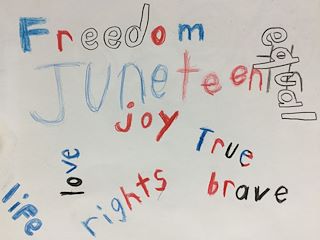 Freedom
equal
JUneteenth
joy
love
True
life
rights
brave